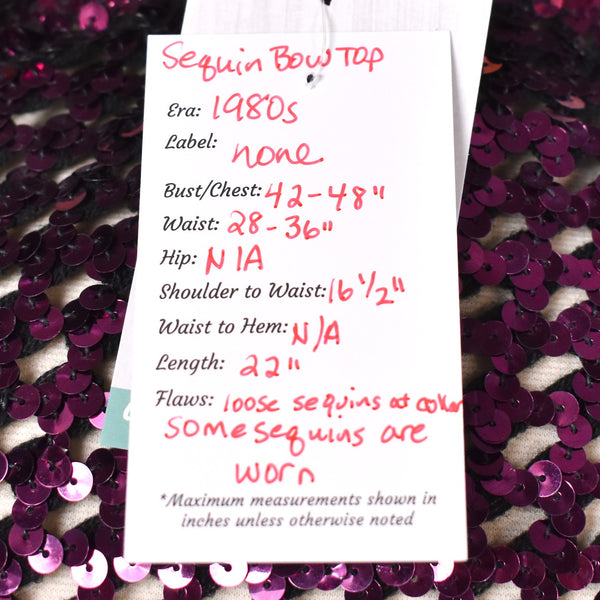 Sequin Bow Top
Era: 1980s
Label: none
Bust/Chest: 42-48"
Waist: 28-36"
Hip: N/A
Shoulder to Waist: 16 1/2"
Waist to Hem: N/A
Length: 22"
Flaws: loose sequins at collar
some sequins are
worn
*Maximum measurements shown in
inches unless otherwise noted